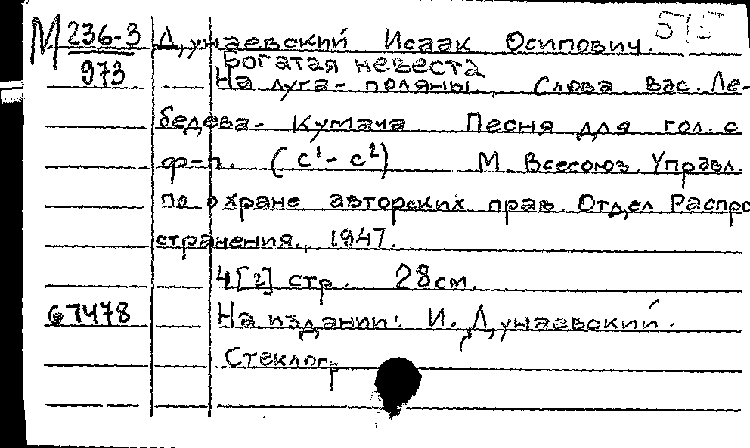 М 236-3 Дунаевский Исаак Осипович.
973 Богатая невеста
На луга-поляны. Слова Вас. Ле-
бедева-Кумача Песня для гол. с
ф-п. (с¹-с²) М. Всесоюз. Управл.
по охране авторских прав. Отдел Распро
странения., 1947.
4[2] стр. 28 см.
67478 На издании: И. Дунаевский.
Стеклогр